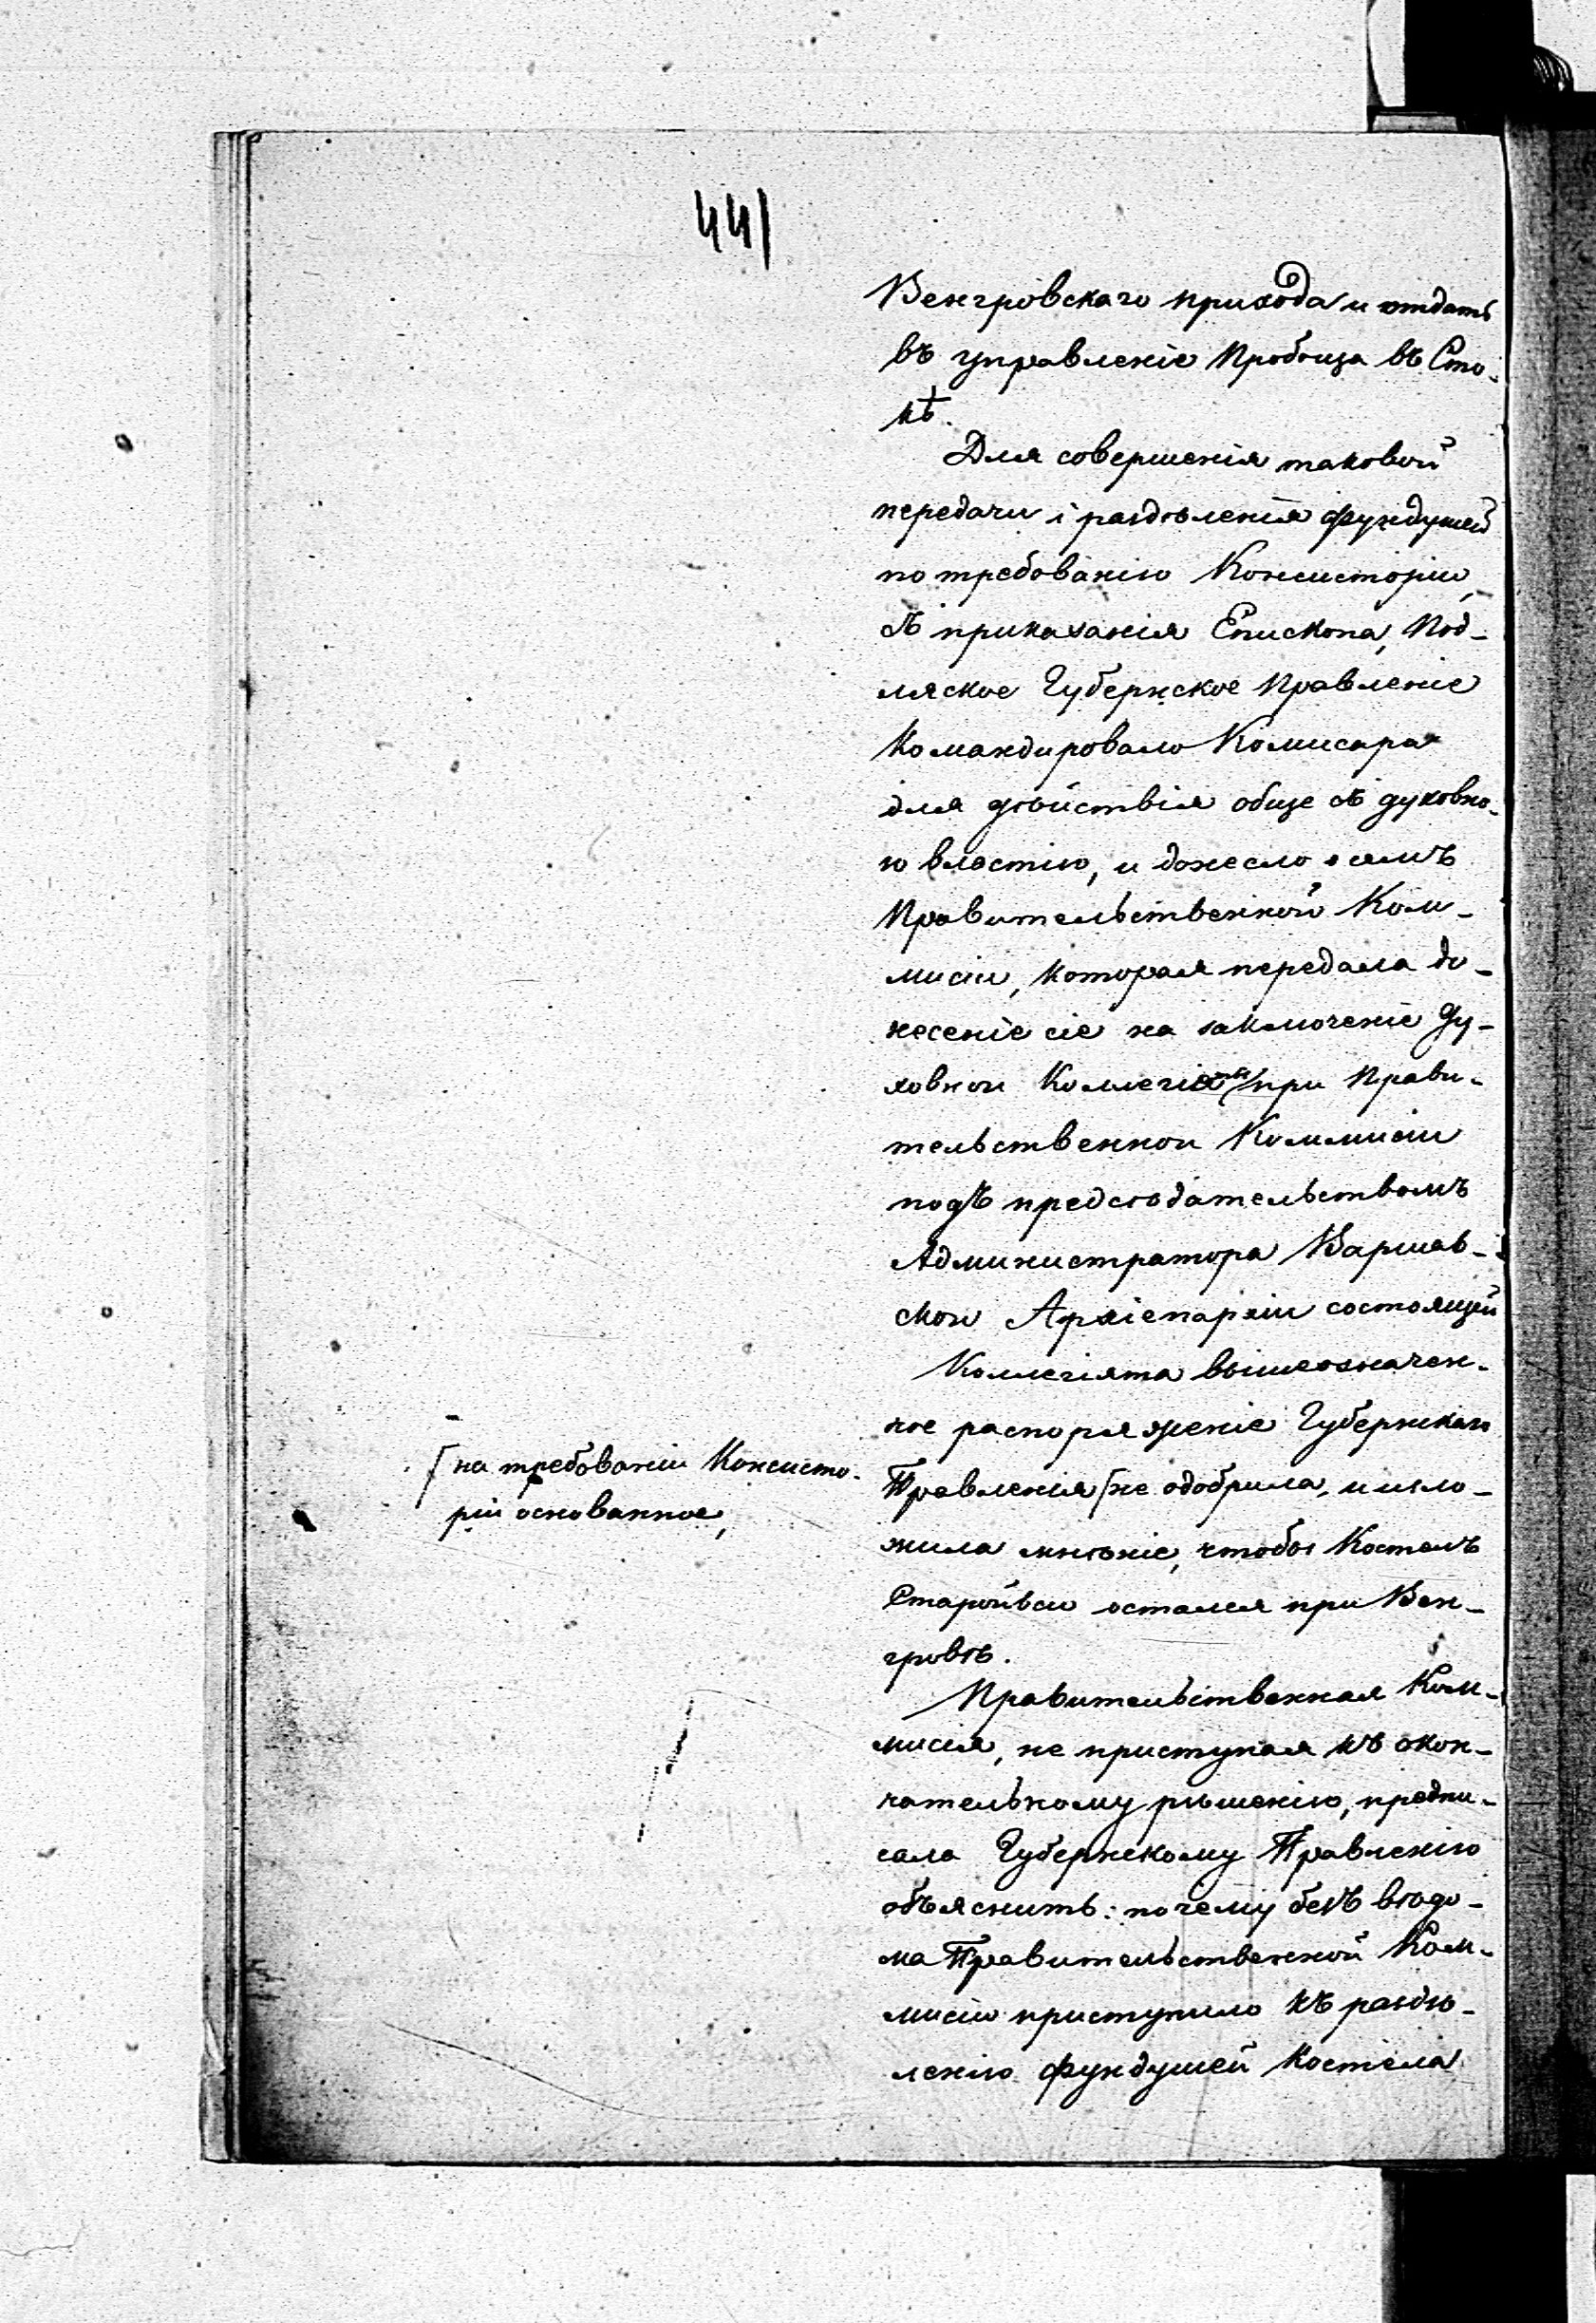 441
Венгровскаго прихода и отдать
въ управленіе Пробоща въ Сто-
кѣ.
Для совершенія таковой
передачи і раздѣленія фундушей
по требованію Консисторіи,
съ приказанія Епископа, Под-
ляское Губернское Правленіе
командировало Комисара
для дѣйствія обще съ духовно-
ю властію, и донесло о семъ
Правительственной Ком-
мисіи, которая передала до-
несеніе сіе на заключеніе Ду-
ховнои Коллегіяты при Прави-
тельственнои Коммисіи
подъ предсѣдательствомъ
Администратора Варшав-
скои Архіепархіи состоящей
Коллегіята вышеозначен-
ное распоряженіе Губернскаго
[на требованіи Консисто-
ріи основанное,
Правленія [не одобрила, и изло-
жила мнѣніе, чтобы Костелъ
Старойвси остался при Вен-
гровѣ.
Правительственная Ком-
мисія, не приступая къ окон-
чательному рѣшенію, предпи-
сала Губернскому Правленію
объяснить: почему безъ вѣдо-
ма Правительственной Ком-
мисіи приступило къ раздѣ-
ленію фундушей Костела